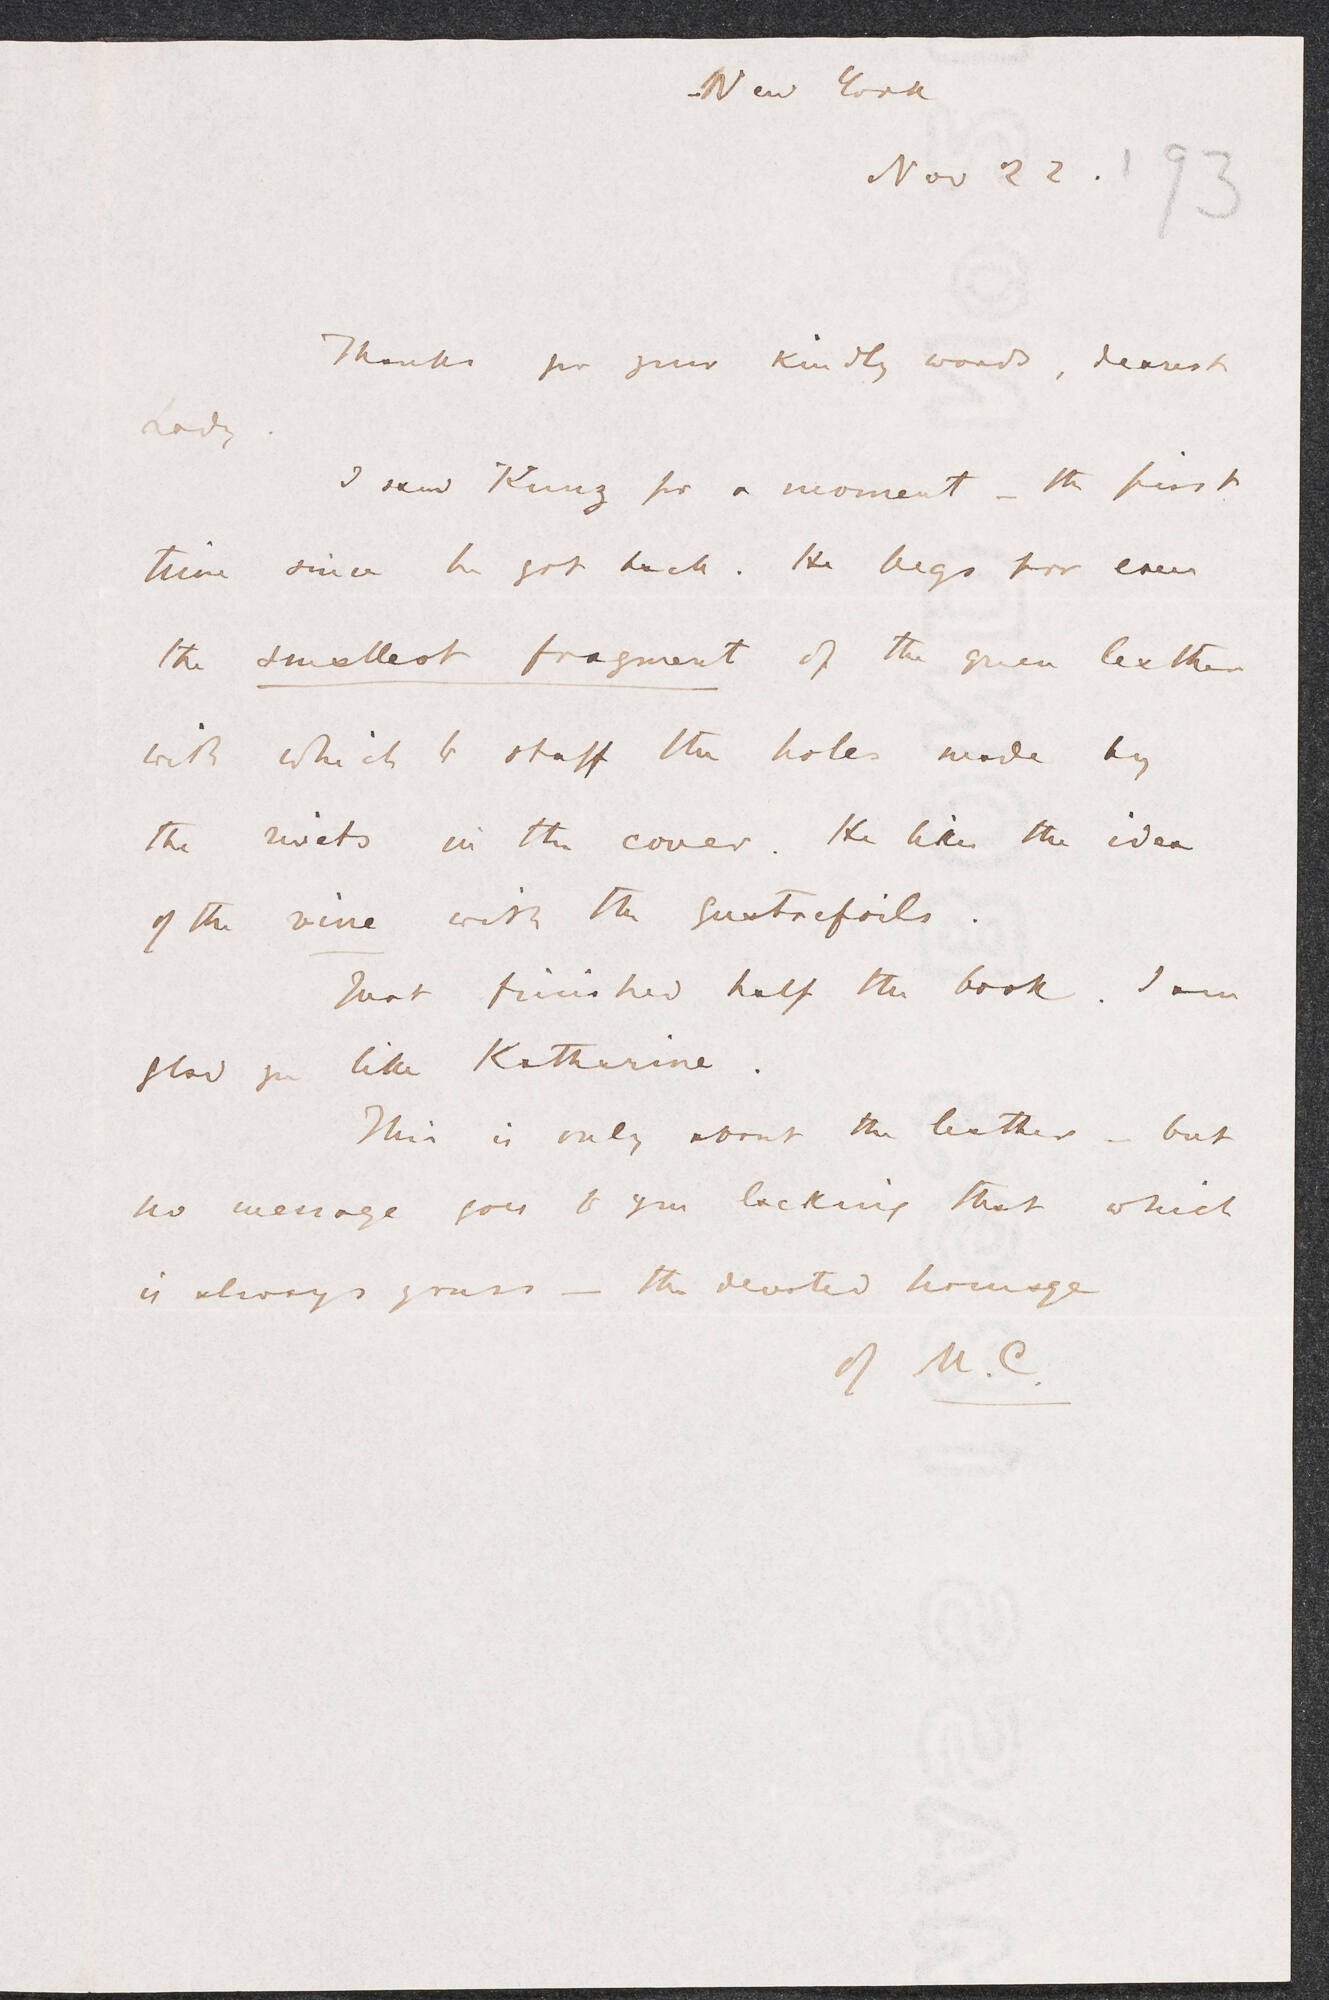 New York
Nov 22. '93
Thanks for your kindly words, dearest
Lady.
I saw Kunz for a moment – the first
time since he got back. He begs for even
the smallest fragment of the green leather
with which to stuff the holes made by
the rivets in the cover. He likes the idea
of the vine with the quatrefoils.
Just finished half the book. I am
glad you like Katharine.
This is only about the leather – but
no message goes to you lacking that which
is always yours – the devoted homage
of M.C.